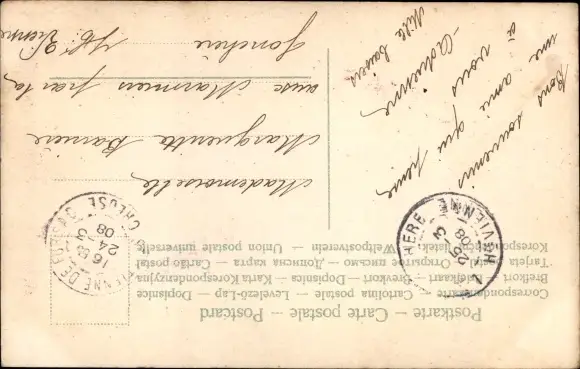 Bons souvenirs
une amie qui pense
à vous
Adrienne
Mille baisers
Mademoiselle
Marguerite Barrière
aux Marmiers par la
Jonchère
Hte Vienne
Postkarte — Carte postale — Postcard
Correspondenzkarte — Cartolina postale — Levelező-Lap — Dopisnice
Brefkort — Briefkaart — Brevkort — Dopisnica — Karta Korespondencyjna
Tarjeta postal — Открытое письмо — Дописна карта — Cartão postal
Korespondenčni listek — Weltpostverein — Union postale universelle
16
24
08
HTE VIENNE
08